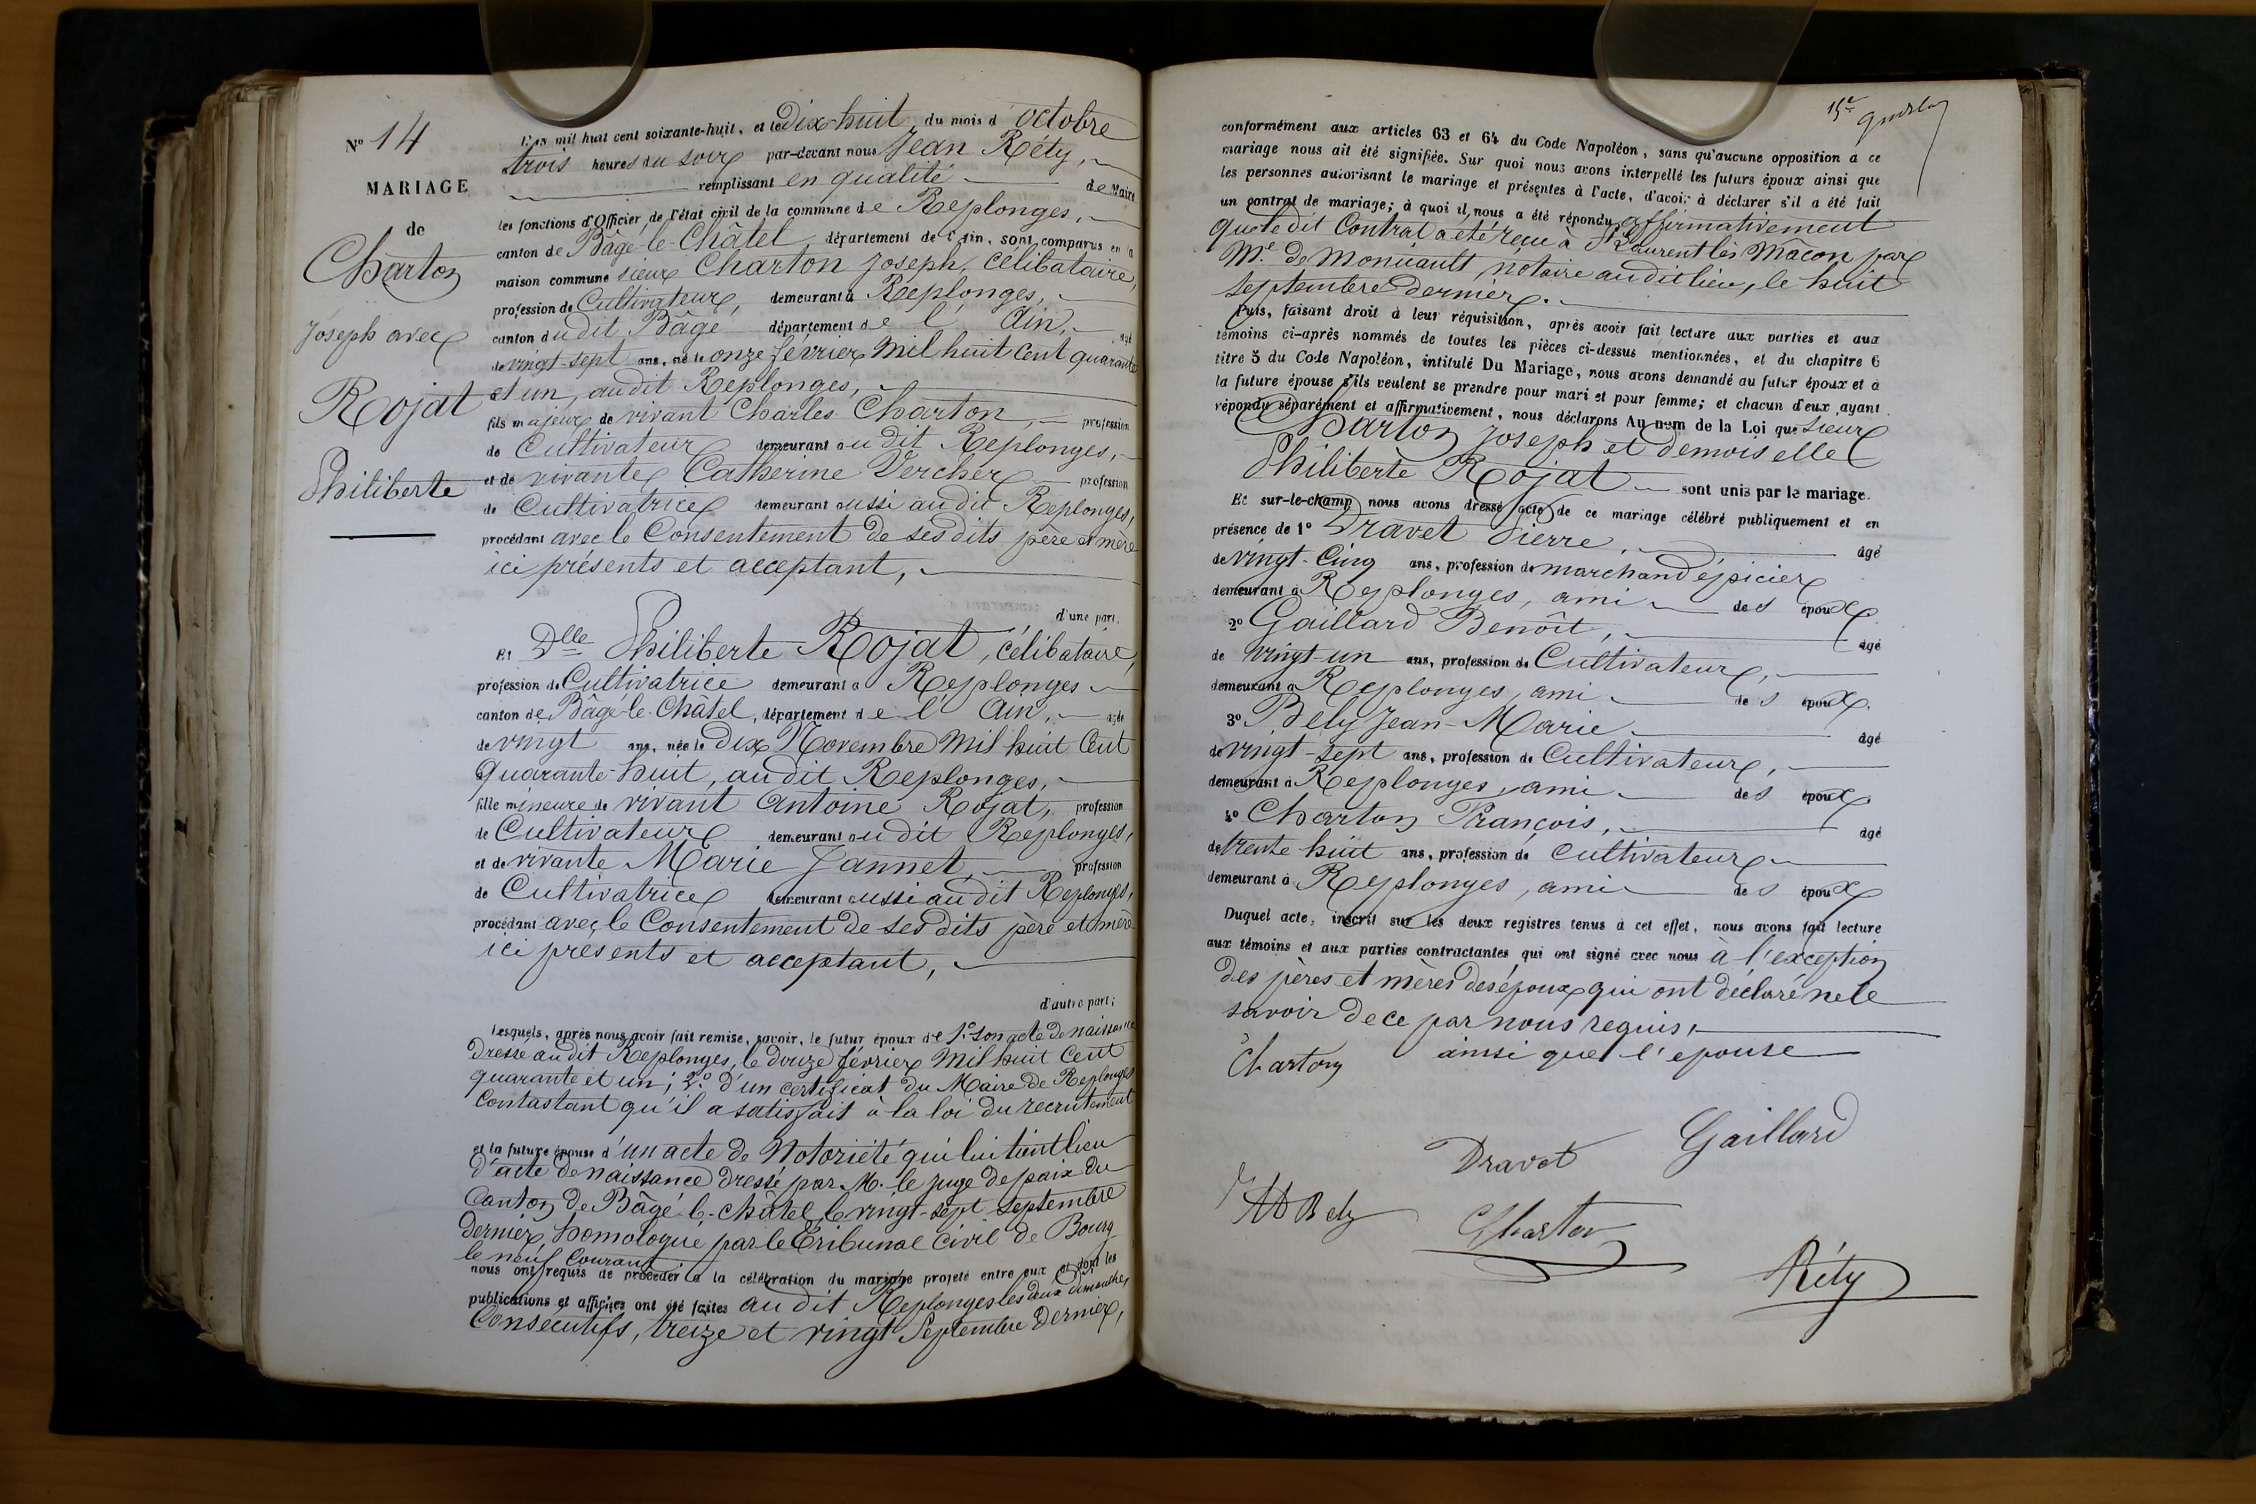 N° 14
MARIAGE
de
Charton
Joseph avec
Rojat
Philiberte
L'an mil huit cent soixante-huit, et le Dix-huit du mois d'octobre
trois heures du soir par-devant nous Jean Réty,
remplissant en qualité de Maire
les fonctions d'Officier de l'état civil de la commune de Replonges,
canton de Bâgé-le-Châtel, département de l'Ain, sont comparus en la
maison commune sieur Charton Joseph, célibataire,
profession de Cultivateur, demeurant à Replonges,
canton du dit Bâgé département de l'Ain, agé
de vingt-sept ans, né le onze février mil huit cent quarante
et un, au dit Replonges,
fils majeur de vivant Charles Charton, profession
de Cultivateur demeurant au dit Replonges,
et de vivante Catherine Vercher profession
de Cultivatrice demeurant aussi au dit Replonges,
procédant avec le Consentement de ses dits père et mère
ici présents et acceptant,
d'une part,
Et Dlle Philiberte Rojat, célibataire,
profession de Cultivatrice demeurant à Replonges
canton de Bâgé-le-Châtel, département de l'Ain, agée
de vingt ans, née le Dix Novembre mil huit Cent
quarante-huit, au dit Replonges,
fille mineure de vivant Antoine Rojat, profession
de Cultivateur demeurant au dit Replonges,
et de vivante Marie Jannet, profession
de Cultivatrice demeurant aussi au dit Replonges,
procédant avec le Consentement de ses dits père et mère
ici présents et acceptant,
d'autre part;
Lesquels, après nous avoir fait remise, savoir, le futur époux de 1° son acte de naissance
dressé au dit Replonges, le douze février mil huit Cent
quarante et un; 2° d'un certificat du Maire de Replonges
Contastant qu'il a satisfait à la loi du recrutement
et la future épouse d'un acte de Notoriété qui lui tient lieu
d'acte de naissance dressé par M. le juge de paix du
Canton de Bâgé-le-Châtel, le vingt-sept Septembre
dernier, homologué par le Tribunal Civil de Bourg
le neuf Courant
nous ont requis de procéder à la célébration du mariage projeté entre eux et dont les
publications et affiches ont été faites au dit Replonges les deux dimanches,
Consécutifs, treize et vingt Septembre dernier,
15e
conformément aux articles 63 et 64 du Code Napoléon, sans qu'aucune opposition à ce
mariage nous ait été signifiée. Sur quoi nous avons interpellé les futurs époux ainsi que
les personnes autorisant le mariage et présentes à l'acte, d'avoir à déclarer s'il a été fait
un contrat de mariage; à quoi il nous a été répondu affirmativement
que le dit Contrat a été reçu à St Laurent lès Mâcon par
Me de Monicault, notaire au dit lieu, le huit
septembre dernier.
Puis, faisant droit à leur réquisition, après avoir fait lecture aux parties et aux
témoins ci-après nommés de toutes les pièces ci-dessus mentionnées, et du chapitre 6
titre 5 du Code Napoléon, intitulé Du Mariage, nous avons demandé au futur époux et à
la future épouse s'ils veulent se prendre pour mari et pour femme; et chacun d'eux ayant
répondu séparément et affirmativement, nous déclarons Au nom de la Loi que Sieur
Charton Joseph et demoiselle
Philiberte Rojat sont unis par le mariage.
Et sur-le-champ nous avons dressé acte de ce mariage célébré publiquement et en
présence de 1° Dravet Pierre, agé
de vingt-Cinq ans, profession de marchand épicier
demeurant à Replonges, ami des époux.
2° Gaillard Benoît, agé
de vingt-un ans, profession de Cultivateur,
demeurant à Replonges, ami des époux.
3° Bely Jean-Marie agé
de vingt-sept ans, profession de Cultivateur,
demeurant à Replonges, ami des époux.
4° Charton François, agé
de trente huit ans, profession de Cultivateur
demeurant à Replonges, ami des époux
Duquel acte, inscrit sur les deux registres tenus à cet effet, nous avons fait lecture
aux témoins et aux parties contractantes, qui ont signé avec nous à l'exception
des pères et mères des époux qui ont déclaré ne le
savoir de ce par nous requis,
ainsi que l'épouse
Charton
Gaillard
Dravet
Bely
Charton
Réty